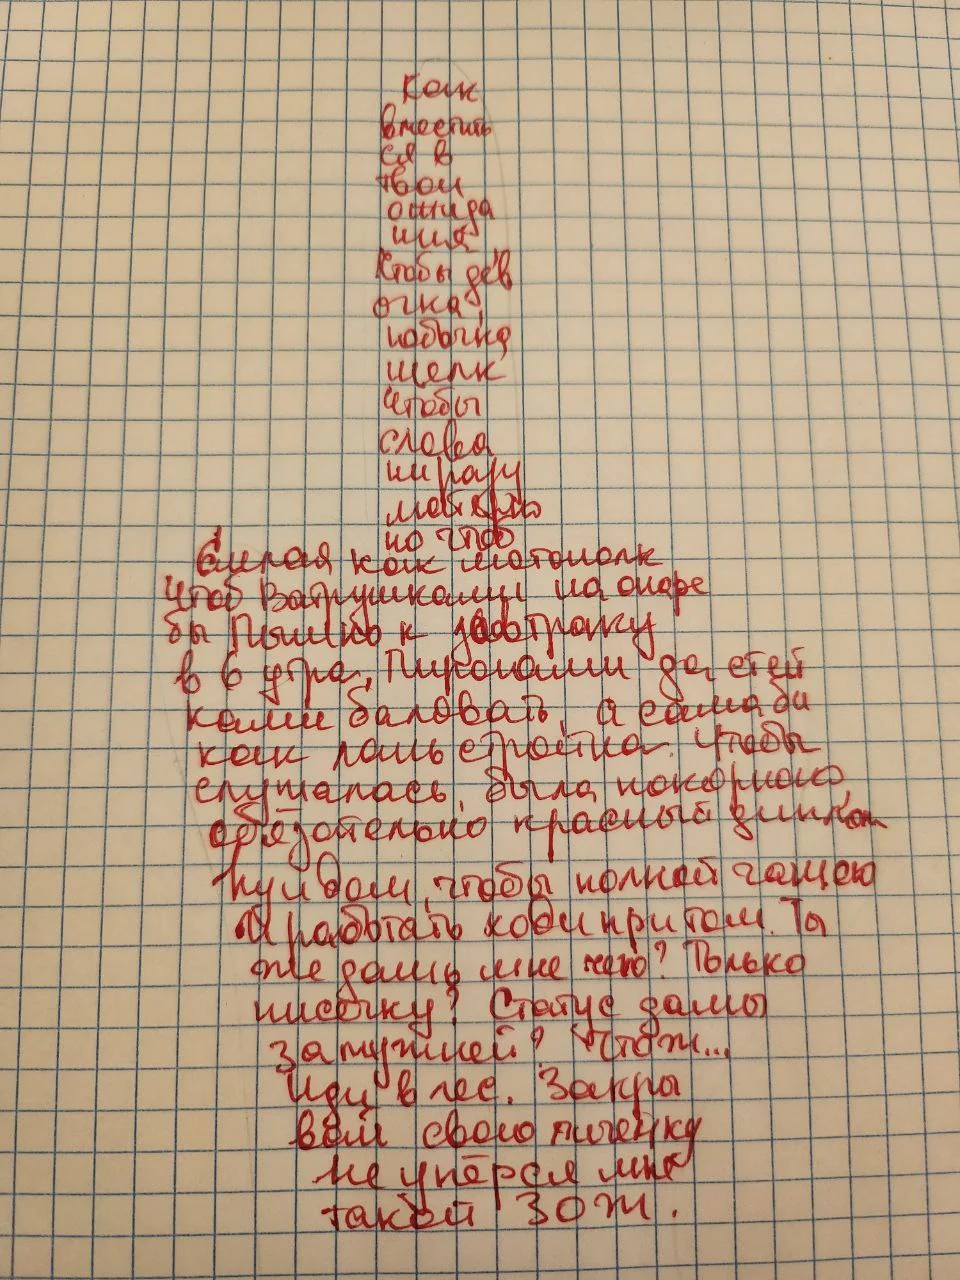 Как
вместить
ся в
твои
ожида
ния
Чтобы дев
очка
набычка
щелк
Чтобы
слова
ни разу
матерно
но чтоб
Смелая как мотополк
Чтоб Ватрушками на опаре
бы Пышно к завтраку
в 6 утра, Пирогами да стей
ками баловать, а сама бы
как лань стройна. Чтобы
слушалась, была покорною,
обязательно красный
дом, чтобы полной чашею
И работать кони при том. Ты
же дашь мне чего? Только
писечку? Статус дамы
замужней? Чтож...
Иди в лес. Закры
вай свою
не упёрся мне
такой ЗОЖ.